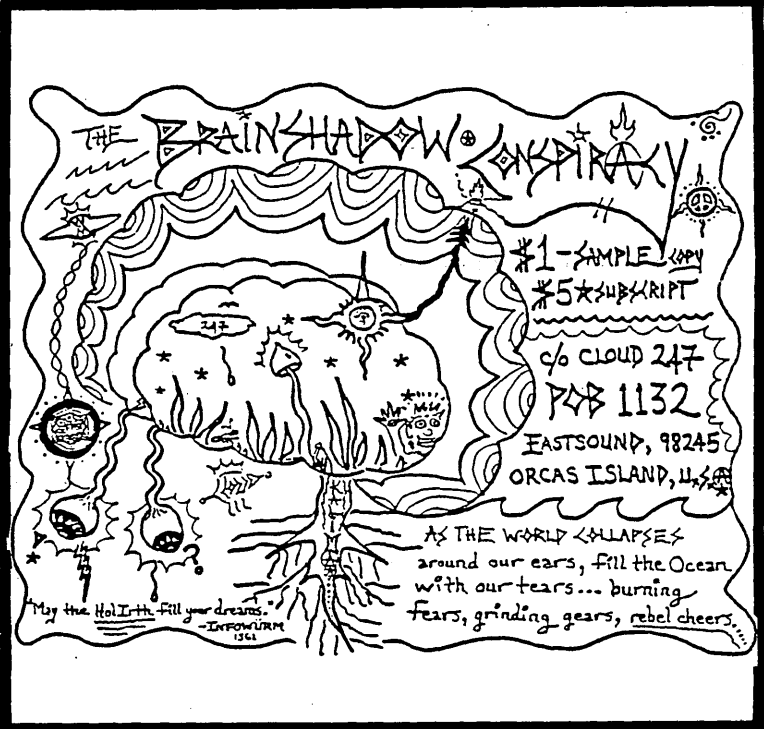 THE BRAINSHADOW CONSPIRACY
$1-SAMPLE COPY
$5★SUBSCRIPT
c/o CLOUD 247
POB 1132
EASTSOUND, 98245
ORCAS ISLAND, U.S.A
247
AS THE WORLD COLLAPSES
around our ears, fill the Ocean
with our tears... burning
fears, grinding gears, rebel cheers.
"May the Hol Irth fill your dreams."
-INFOWÜRM
1361